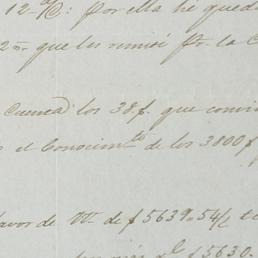 12 por ella he queda
que les remisi pr. la C
Cuenca los 38 f. que convin
el Conocimto de los 3800 f
favor de Vv. de f 5639.54/c
f 5630.